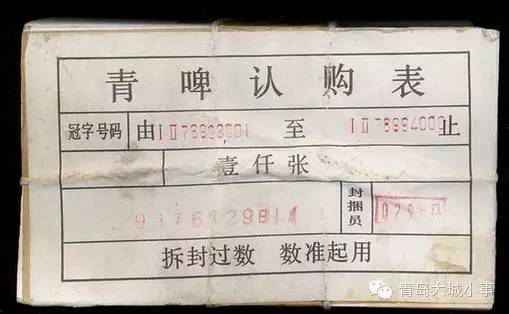 青啤认购表
冠字号码 由 1Ⅱ76993001 至 1Ⅱ76994000 止
壹仟张
93年6月29日 封捆员
拆封过数 数准起用
青岛大城小事